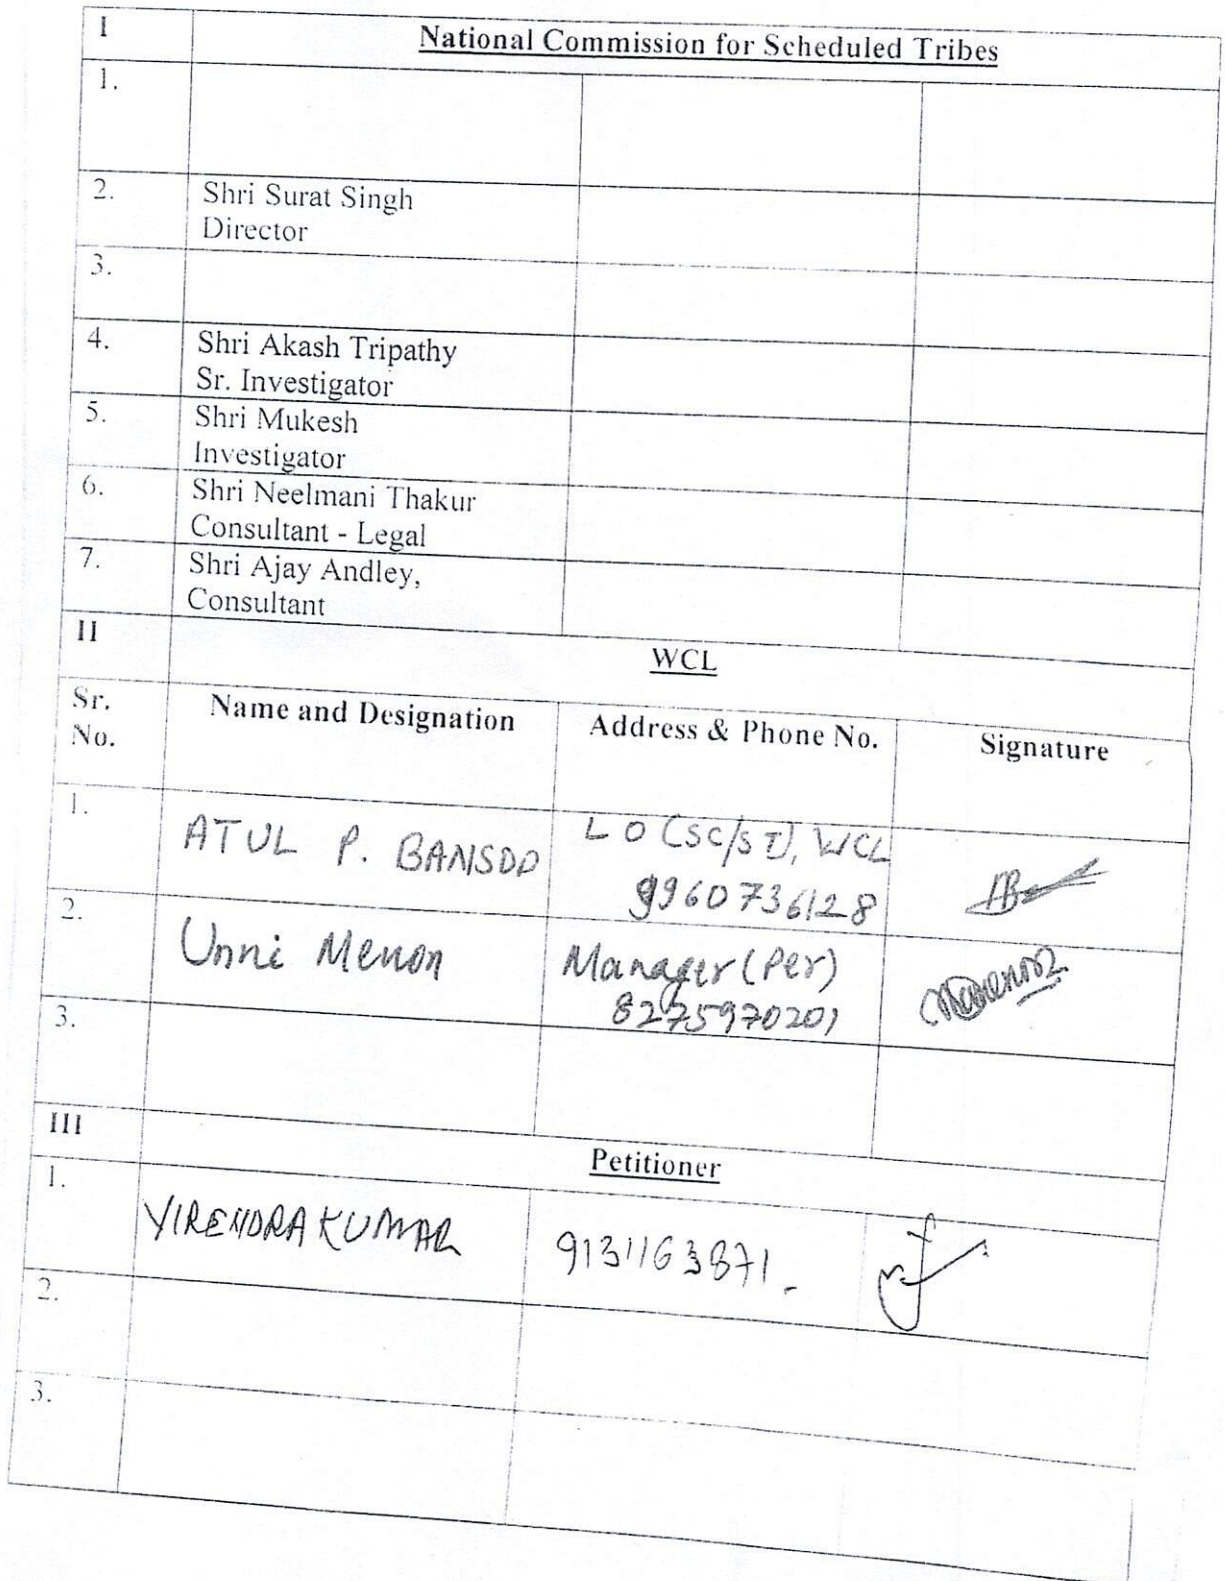 I
National Commission for Scheduled Tribes
1.
2.
Shri Surat Singh
Director
3.
4.
Shri Akash Tripathy
Sr. Investigator
5.
Shri Mukesh
Investigator
6.
Shri Neelmani Thakur
Consultant - Legal
7.
Shri Ajay Andley,
Consultant
II
WCL
Sr.
No.
Name and Designation
Address & Phone No.
Signature
1.
ATUL P. BANSOD
LO (SC/ST), WCL
9960736128
2.
Unni Menon
Manager (Per)
8275970201
3.
III
Petitioner
1.
VIRENDRA KUMAR
9131163871.
2.
3.